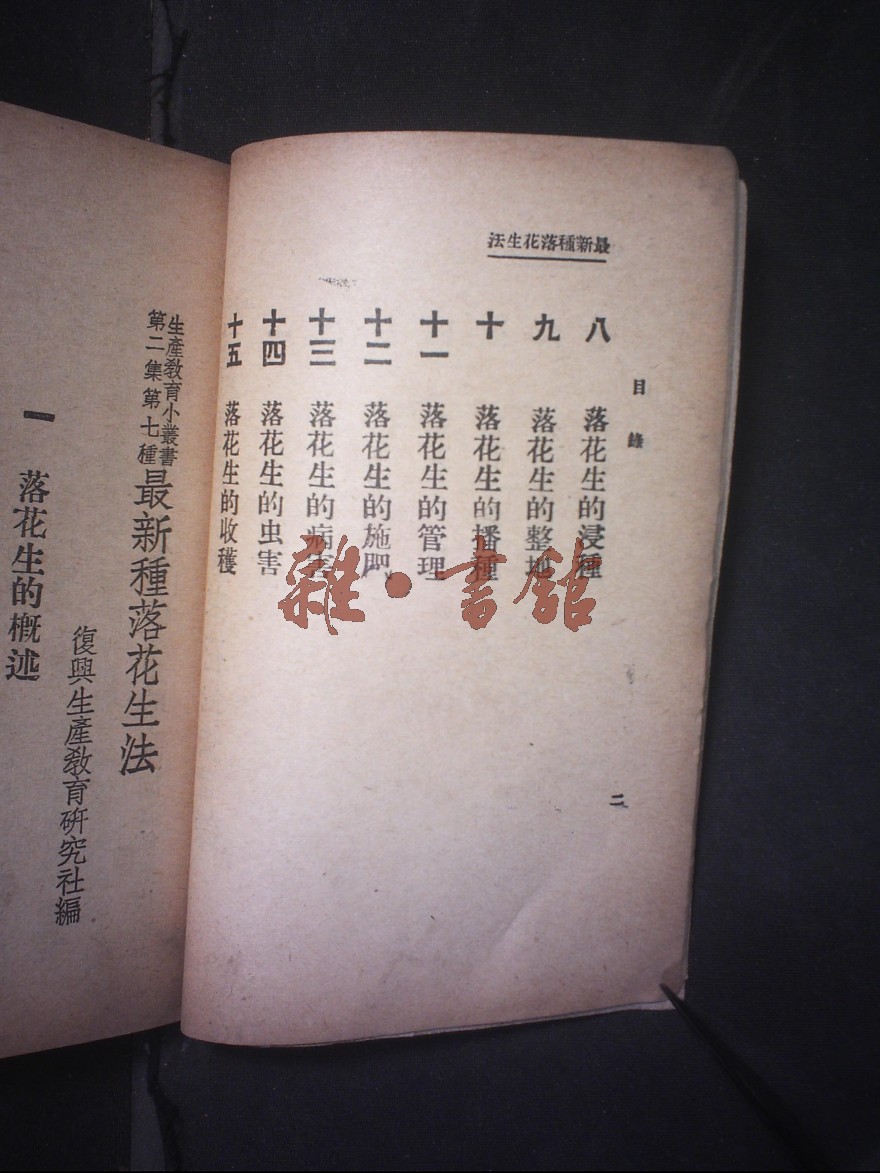 最新種落花生法
目錄
八 落花生的浸種
九 落花生的整地
十 落花生的播種
十一 落花生的管理
十二 落花生的施肥
十三 落花生的病害
十四 落花生的虫害
十五 落花生的收穫
二
生產教育小叢書
第二集第七種
最新種落花生法
復興生產教育研究社編
一 落花生的概述
雜·書館